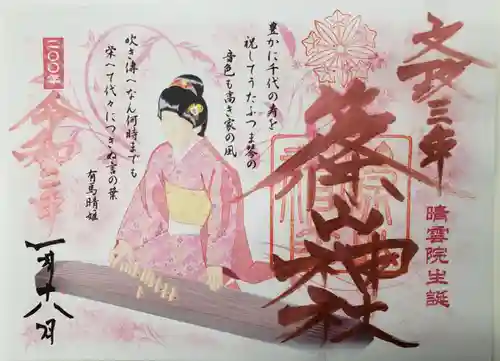 文政三年
晴雲院生誕
篠山神社
豊かに千代の寿を
祝してうたふつま琴の
音色も高き家の風
吹き溥へなん何時までも
栄へて代々につきぬ言の葉
有馬晴姫
二〇〇年
令和二年
一月十八日